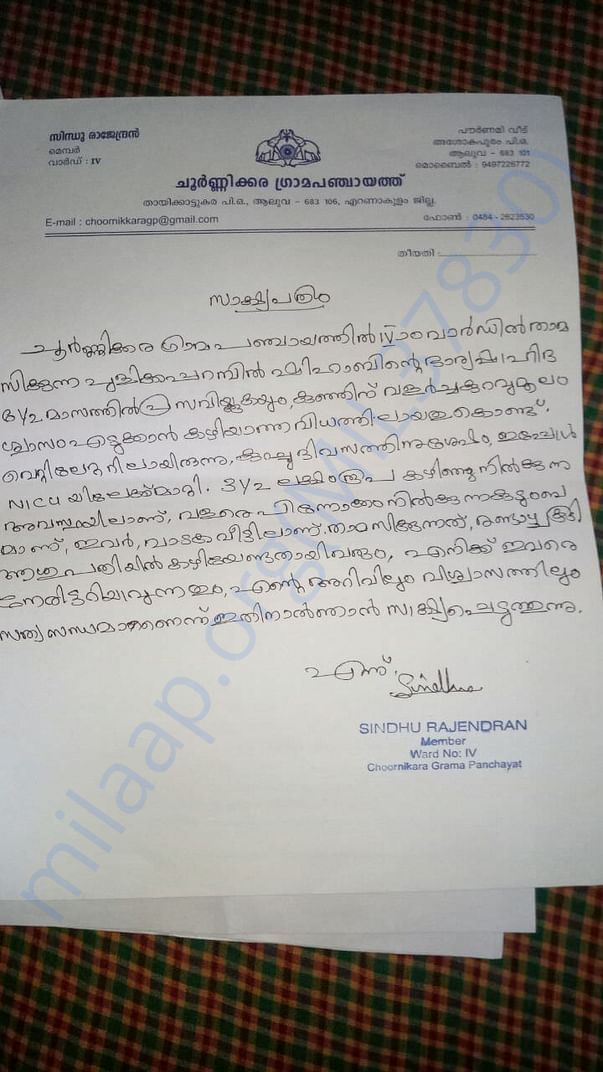 സിന്ധു രാജേന്ദ്രൻ
മെമ്പർ
വാർഡ് : IV
പൗർണമി വീട്
അശോകപുരം പി.ഒ.
ആലുവ - 683 101
മൊബൈൽ : 9497226772
ചൂർണ്ണിക്കര ഗ്രാമപഞ്ചായത്ത്
തായിക്കാട്ടുകര പി.ഒ., ആലുവ - 683 106, എറണാകുളം ജില്ല.
E-mail : choornikkaragp@gmail.com
ഫോൺ : 0484 - 2623530
തീയതി :
സാക്ഷ്യപത്രം
ചൂർണ്ണിക്കര ഗ്രാമ പഞ്ചായത്തിൽ IV ാം വാർഡിൽ താമ
സിക്കുന്ന പുളിക്കപറമ്പിൽ ഷിഹാബിന്റെ ഭാര്യ ഷാഹിദ
6 1/2 മാസത്തിൽ പ്രസവിയ്ക്കുകയും, കുഞ്ഞിന് വളർച്ചകുറവുമൂലം
ശ്വാസം എടുക്കാൻ കഴിയാത്ത വിധത്തിലായതുകൊണ്ട്
വെന്റിലേറ്ററിലായിരുന്നു, കുറച്ചു ദിവസത്തിനുശേഷം, ഇപ്പോൾ
NICU യിലേക്ക് മാറ്റി. 3 1/2 ലക്ഷം രൂപ കഴിഞ്ഞു നിൽക്കുന്ന
അവസ്ഥയിലാണ്, വളരെ പിന്നോക്കം നിൽക്കുന്ന കുടുംബ
മാണ്, ഇവർ, വാടകവീട്ടിലാണ് താമസിക്കുന്നത്, രണ്ടാഴ്ച കൂടി
ആശുപത്രിയിൽ കഴിയേണ്ടതായി വരും, എനിക്ക് ഇവരെ
നേരിട്ടറിയാവുന്നതും, എന്റെ അറിവിലും വിശ്വാസത്തിലും
സത്യസന്ധമാണെന്ന് ഇതിനാൽ ഞാൻ സാക്ഷ്യപ്പെടുത്തുന്നു.
എന്ന്,
Sindhu
SINDHU RAJENDRAN
Member
Ward No: IV
Choornikara Grama Panchayat
milaap.org/MIL37830